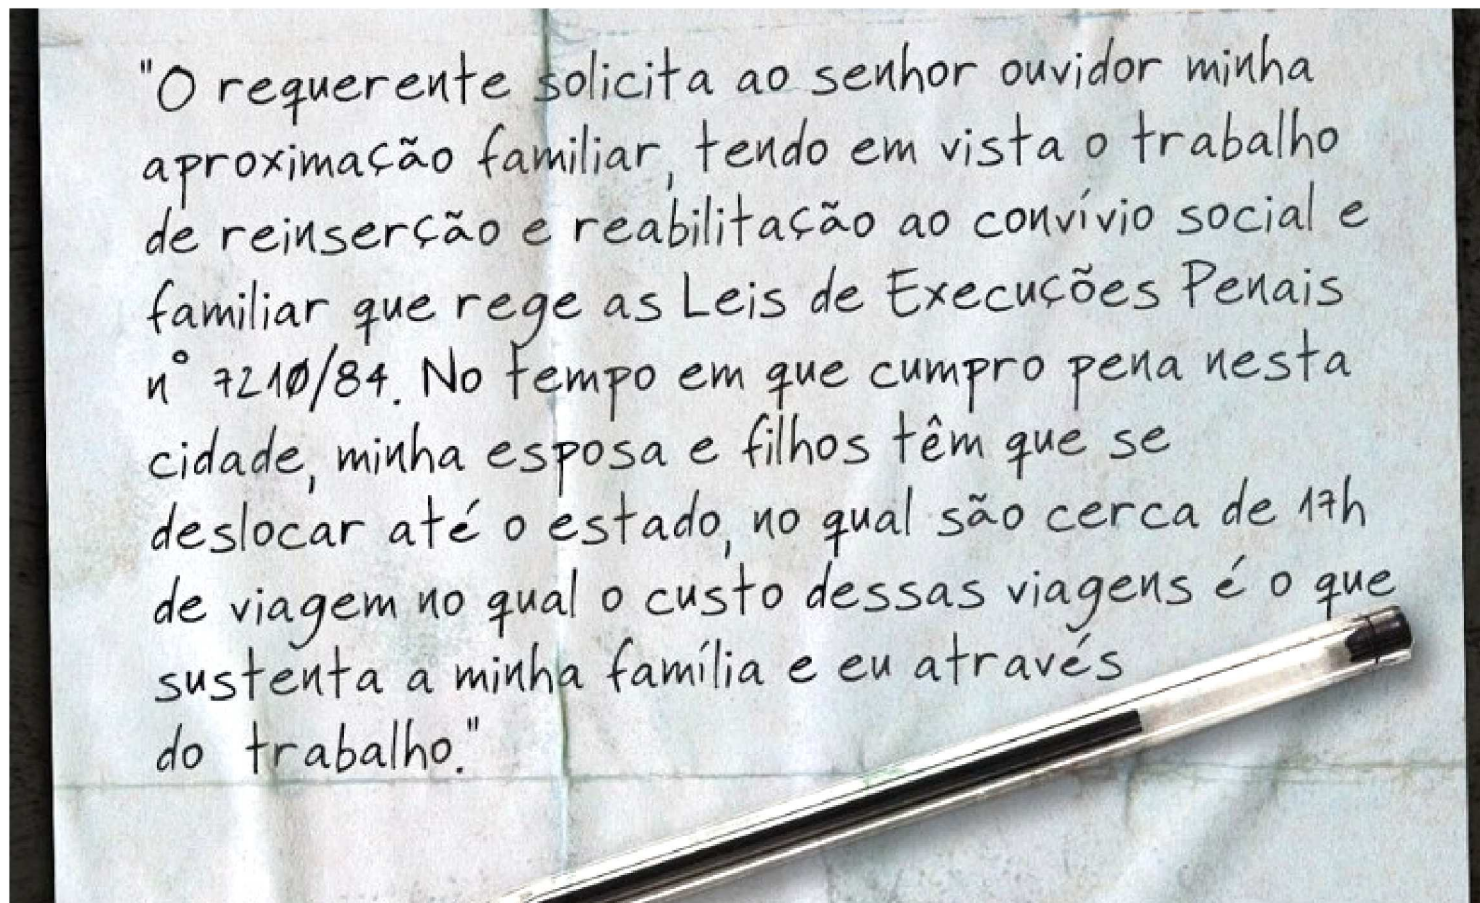 "O requerente solicita ao senhor ouvidor minha
aproximação familiar, tendo em vista o trabalho
de reinserção e reabilitação ao convívio social e
familiar que rege as Leis de Execuções Penais
nº 7210/84. No tempo em que cumpro pena nesta
cidade, minha esposa e filhos têm que se
deslocar até o estado, no qual são cerca de 17h
de viagem no qual o custo dessas viagens é o que
sustenta a minha família e eu através
do trabalho."